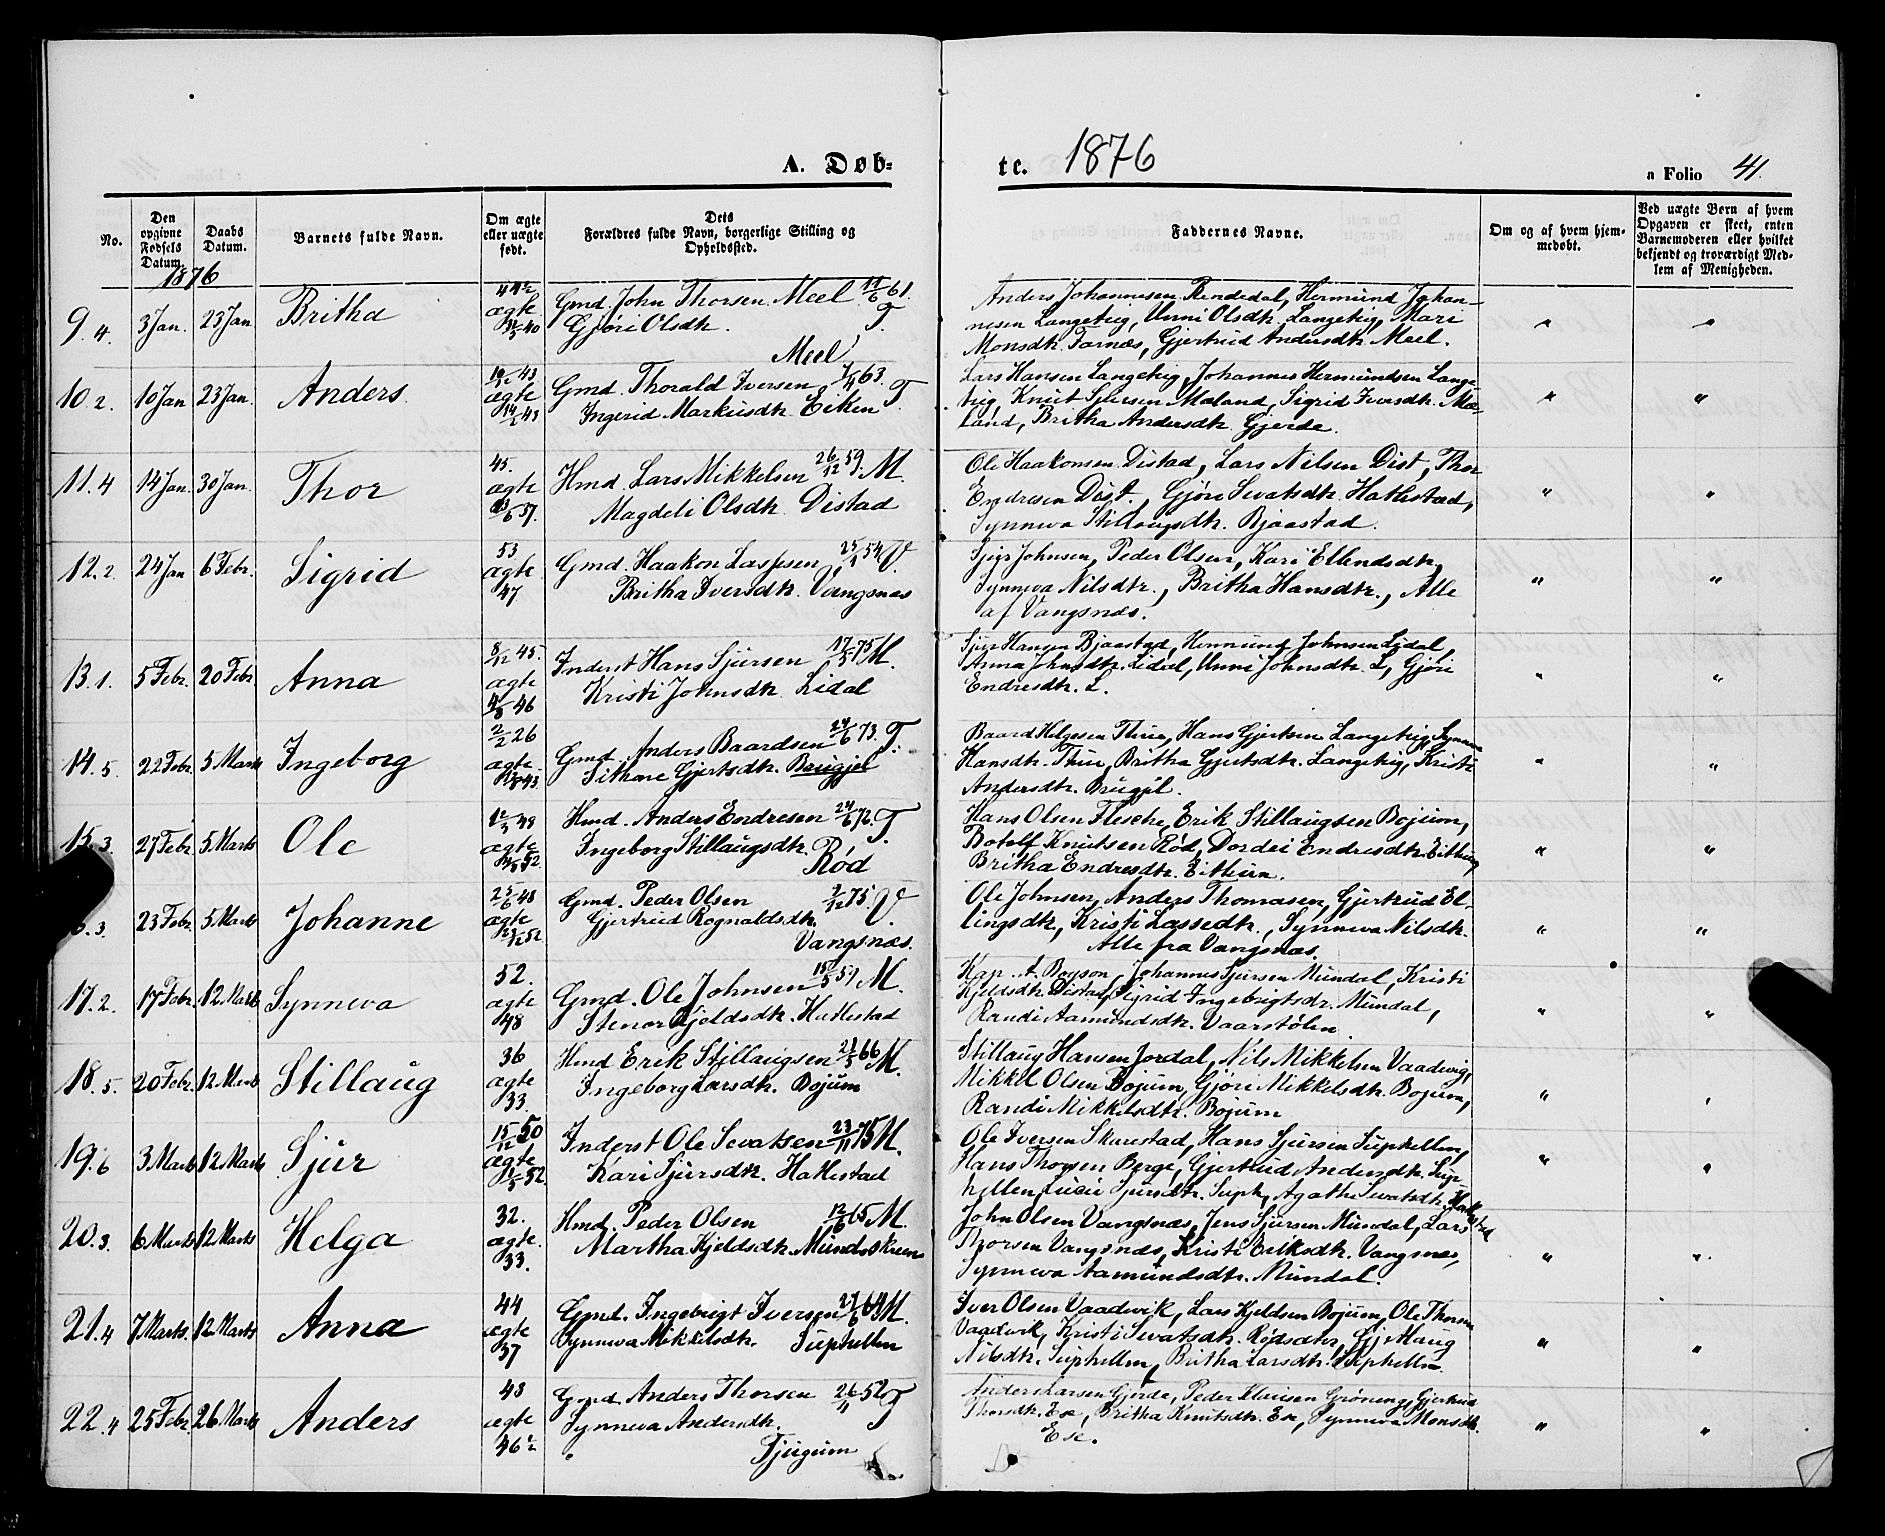 A. Døb-
te. 1876
a Folio 41.
No.
Den opgivne Fødsels Datum.
Daabs Datum.
Barnets fulde Navn.
Om ægte eller uægte født.
Dets Forældres fulde Navn, borgerlige Stilling og Opholdssted.
Faddernes Navne.
Om og af hvem hjemmedøbt.
Ved uægte Børn af hvem Opgaven er skeet, enten Barnemoderen eller hvilket bekjendt og troværdigt Medlem af Menigheden.
1876
9. 4. 3 Jan. 23 Jan. Britha ægte
Gmd. John Thorsen Meel 61.
Gjøri Olsdtr. T.
Meel
Anders Johannesen Rendedal, Hermund Johan-
nesen Langeteig, Unni Olsdtr. Langeteig, Mari
Monsdtr. Farnæs, Gjertrud Andersdtr. Meel.
10. 2. 10 Jan 23 Jan. Anders. 43 ægte 43
Gmd. Thorald Iversen 63. T.
Ingerid Markusdtr. Eiken
Lars Hansen Langeteig, Johannes Hermundsen Lange-
teig, Knut Sjursen Mæland, Sigrid Iversdtr. Mæ-
land, Britha Andersdtr. Gjerde.
11. 4 14 Jan. 30 Jan. Thor 45. ægte 57.
Hmd. Lars Mikkelsen 26/12 59. M.
Magdeli Olsdtr. Distad
Ole Haakonsen Distad, Lars Nilsen Dist, Thor
Endresen Dist., Gjøri Sevatsdtr. Hatlestad,
Synneva Stillaugsdtr. Bjaastad.
12. 2. 24 Jan 6 Febr. Sigrid 53 ægte 47
Gmd. Haakon Lassesen 54 V.
Britha Iversdtr. Vangsnæs
Sjur Johnsen, Peder Olsen, Kari Ellendsdtr.
Synneva Nilsdtr., Britha Hansdtr., Alle
af Vangsnæs.
13. 1. 5 Febr. 20 Febr. Anna 8/12 45. ægte 46
Inderst Hans Sjursen 75 M.
Kristi Johnsdtr. Lidal
Sjur Hansen Bjaastad, Hermund Johnsen Lidal,
Anna Johnsdtr. Lidal, Unni Johnsdtr. L, Gjøri
Endresdtr. L.
14. 5. 22 Febr. 5 Marts Ingeborg 2/2 26 ægte 43
Gmd. Anders Baardsen 24/6 73. T.
Sithare Gjertsdtr.
Baard Helgesen Thue, Hans Gjertsen Langeteig, Synneva
Hansdtr. Thue, Britha Gjertsdtr. Langeteig, Kristi
Andersdtr.
15. 3. 27 Febr. 5 Marts Ole ægte 52
Hmd. Anders Endresen 24/6 76. T.
Ingeborg Stillaugsdtr.
Rød
Hans Olsen Flesche, Erik Stillaugsen Bojum,
Botolf Knutsen Rød, Dordei Endresdtr. Eithun
Britha Endresdtr. Eithun.
3. 23 Febr. 5 Marts Johanne 48 ægte 52
Gmd. Peder Olsen 75. V.
Gjertrud Rognaldsdtr.
Vangsnæs.
Ole Johnsen, Anders Thomasen, Gjertrud El-
lingsdtr, Kristi Lassedtr., Synneva Nilsdtr.
Alle fra Vangsnæs.
17. 2. 17 Febr. 12 Marts Synneva 52. ægte 48
Gmd. Ole Johnsen M.
Stenor Kjeldsdtr. Hatlestad
Kap. A. Boyson, Johannes Sjursen Mundal, Kristi
Kjeldsdtr. Distad, Sigrid Ingebrigtsdr. Mundal,
Randi Aamundsdtr. Vaarstølen
18. 5. 20 Febr. 12 Marts Stillaug 36 ægte 33.
Hmd Erik Stillaugsen 21/5 66 M.
Ingeborg Larsdtr. Bojum
Stillaug Hansen Jordal, Nils Mikkelsen Vaadevig,
Mikkel Olsen Bojum, Gjøri Mikkelsdtr. Bojum,
Randi Mikkelsdtr. Bojum
19. 6 3 Marts 12 Marts Sjur 15/12 50 ægte 52
Inderst Ole Sevatsen 23/11 75 M.
Kari Sjursdtr. Hatlestad
Ole Iversen Skarestad, Hans Sjursen Suphellen,
Hans Thorsen Berge, Gjertrud Andersdtr. Sup-
hellen, Lucie Sjursdtr. Suph, Agathe Sevatsdtr. Hatlestad
20. 3. 6 Marts 12 Marts Helga 32. ægte. 33.
Hmd. Peder Olsen 12/6 65 M.
Martha Kjeldsdtr. Mundalskreen
John Olsen Vangsnæs, Jens Sjursen Mundal, Lars
Thorsen Vangsnæs, Kristi Eriksdtr. Vangsnæs,
Synneva Aamundsdtr. Mundal.
21. 4 7 Marts. 12 Marts Anna 44 ægte 37
Gmd. Ingebrigt Iversen 64 M.
Synneva Mikkelsdtr. Suphellen
Iver Olsen Vaadevik, Lars Kjeldsen Bojum, Ole Thorsen
Vaadevik, Kristi Sevatsdtr.
Nilsdtr. Suphellen, Britha Larsdtr. Suphellen
22. 4 25 Febr. 26 Marts Anders 43 ægte 46½
Gmd Anders Thorsen 26/11 52 T
Synneva Andersdtr.
Tjugum
Anders Larsen Gjerde, Peder Klausen Grøneng, Gjertrud
Thorsdtr. Ese, Britha Knutsdtr. Ese, Synneva Monsdtr.
Ese.